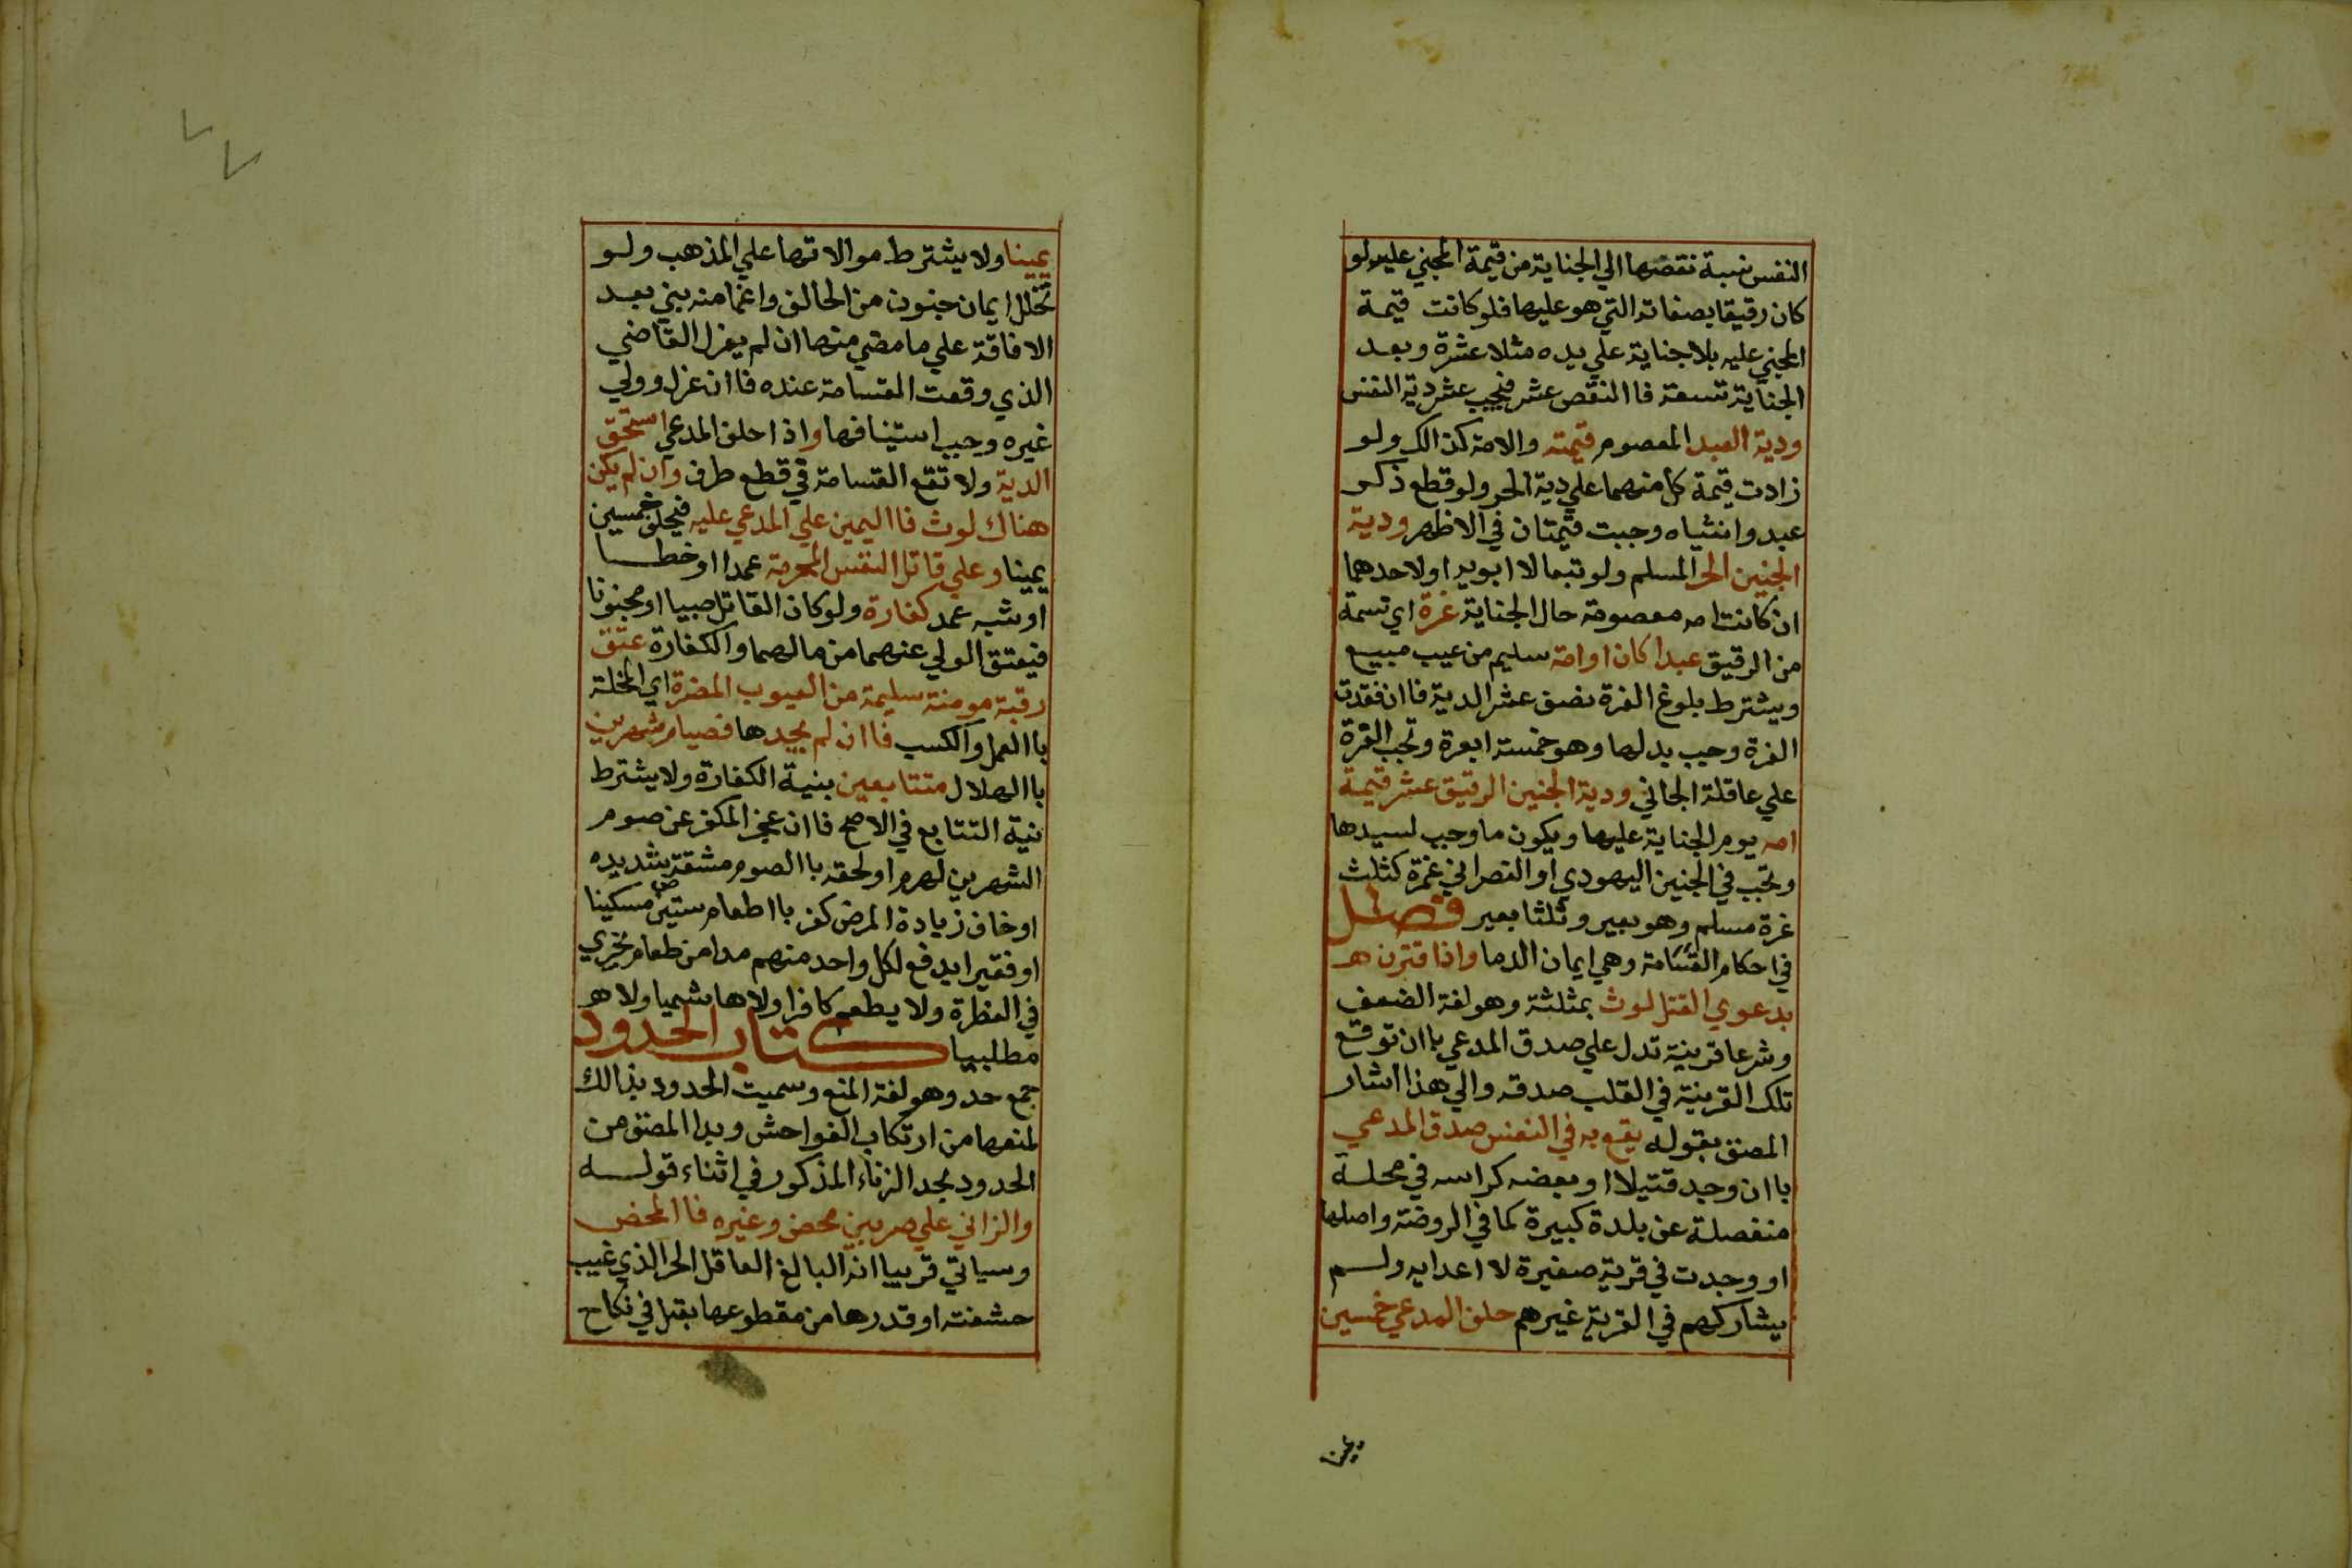 النفس نسبة نقصها الي الجناية من قيمة المجني عليه لو
كان رقيقا بصفاته التي هو عليها فلو كانت قيمة
المجني عليه بلا جناية علي يده مثلا عشرة وبعد
الجناية تسعة فاالنقص عشر فيجب عشر دية النفس
ودية العبد المعصوم قيمته والامة كذالك ولو
زادت قيمة كل منهما علي دية الحر ولو قطع ذكر
عبد وانثياه وجبت قيمتان في الاظهر ودية
الجنين الحر المسلم ولو تبعا لاابويه او لاحدهما
ان كانت امه معصومة حال الجناية غرة اي نسمة
من الرقيق عبدا كان او امة سليم من عيب مبيع
ويشترط بلوغ الغرة نصف عشر الدية فاان فقدت
الغرة وجب بدلها وهو خمسة ابعرة وتجب الغرة
علي عاقلة الجاني ودية الجنين الرقيق عشر قيمة
امه يوم الجناية عليها ويكون ما وجب لسيدها
وتجب في الجنين اليهودي او النصراني غرة كثلث
غرة مسلم وهو بعير وثلثا بعير فصل
في احكام القسامة وهي ايمان الدما واذا قترن هـ
بدعوي القتل لوث بمثلثة وهو لغة الضعف
وشرعا قرينة تدل علي صدق المدعي باان توقع
تلك القرينة في القلب صدقه والي هذا اشار
المصنف بقوله يقع به في النفس صدق المدعي
باان وجد قتيلا او بعضه كراسه في محلة
منفصلة عن بلدة كبيرة كما في الروضة واصلها
او وجدت في قرية صغيرة لا اعدايه ولم
يشاركهم في القرية غيرهم حلف المدعي خمسين
يمينا ولا يشترط موالاتها علي المذهب ولو
تخلل ايمان جنون من الحالف واغما منه بني بعد
الافاقة علي ما مضي منها ان لم يعزل القاضي
الذي وقعت القسامة عنده فاان عزل وولي
غيره وجب استينافها واذا حلف المدعي استحق
الدية ولا تقع القسامة في قطع طرف وان لم يكن
هناك لوث فااليمين علي المدعي عليه فيحلف خمسين
يمينا وعلي قاتل النفس المحرمة عمدا او خطا
او شبه عمد كفارة ولو كان القاتل صبيا او مجنونا
فيعتق الولي عنهما من مالهما والكفارة عتق
رقبة مومنة سليمة من العيوب المضرة اي المخلة
باالعمل والكسب فاان لم يجدها فصيام شهرين
باالهلال متتابعين بنية الكفارة ولا يشترط
نية التتابع في الاصح فاان عجز المكفر عن صوم
الشهرين لهرم او لحقه باالصوم مشقة شديده
او خاف زيادة المرض كفر بااطعام ستين مسكينا
او فقيرا يدفع لكل واحد منهم مدا من طعام يجزي
في الفطرة ولا يطعم كافرا ولا هاشميا ولا هو
مطلبيا كتاب الحدود
جمع حد وهو لغة المنع وسميت الحدود بذالك
لمنعها من ارتكاب الفواحش وبدا المصنف من
الحدود بحد الزناء المذكور في اثناء قوله
والزاني علي ضربين محصن وغيره فاالمحصن
وسياتي قريبا انه البالغ العاقل الحر الذي غيب
حشفته او قدرها من مقطوعها بقبل في نكاح